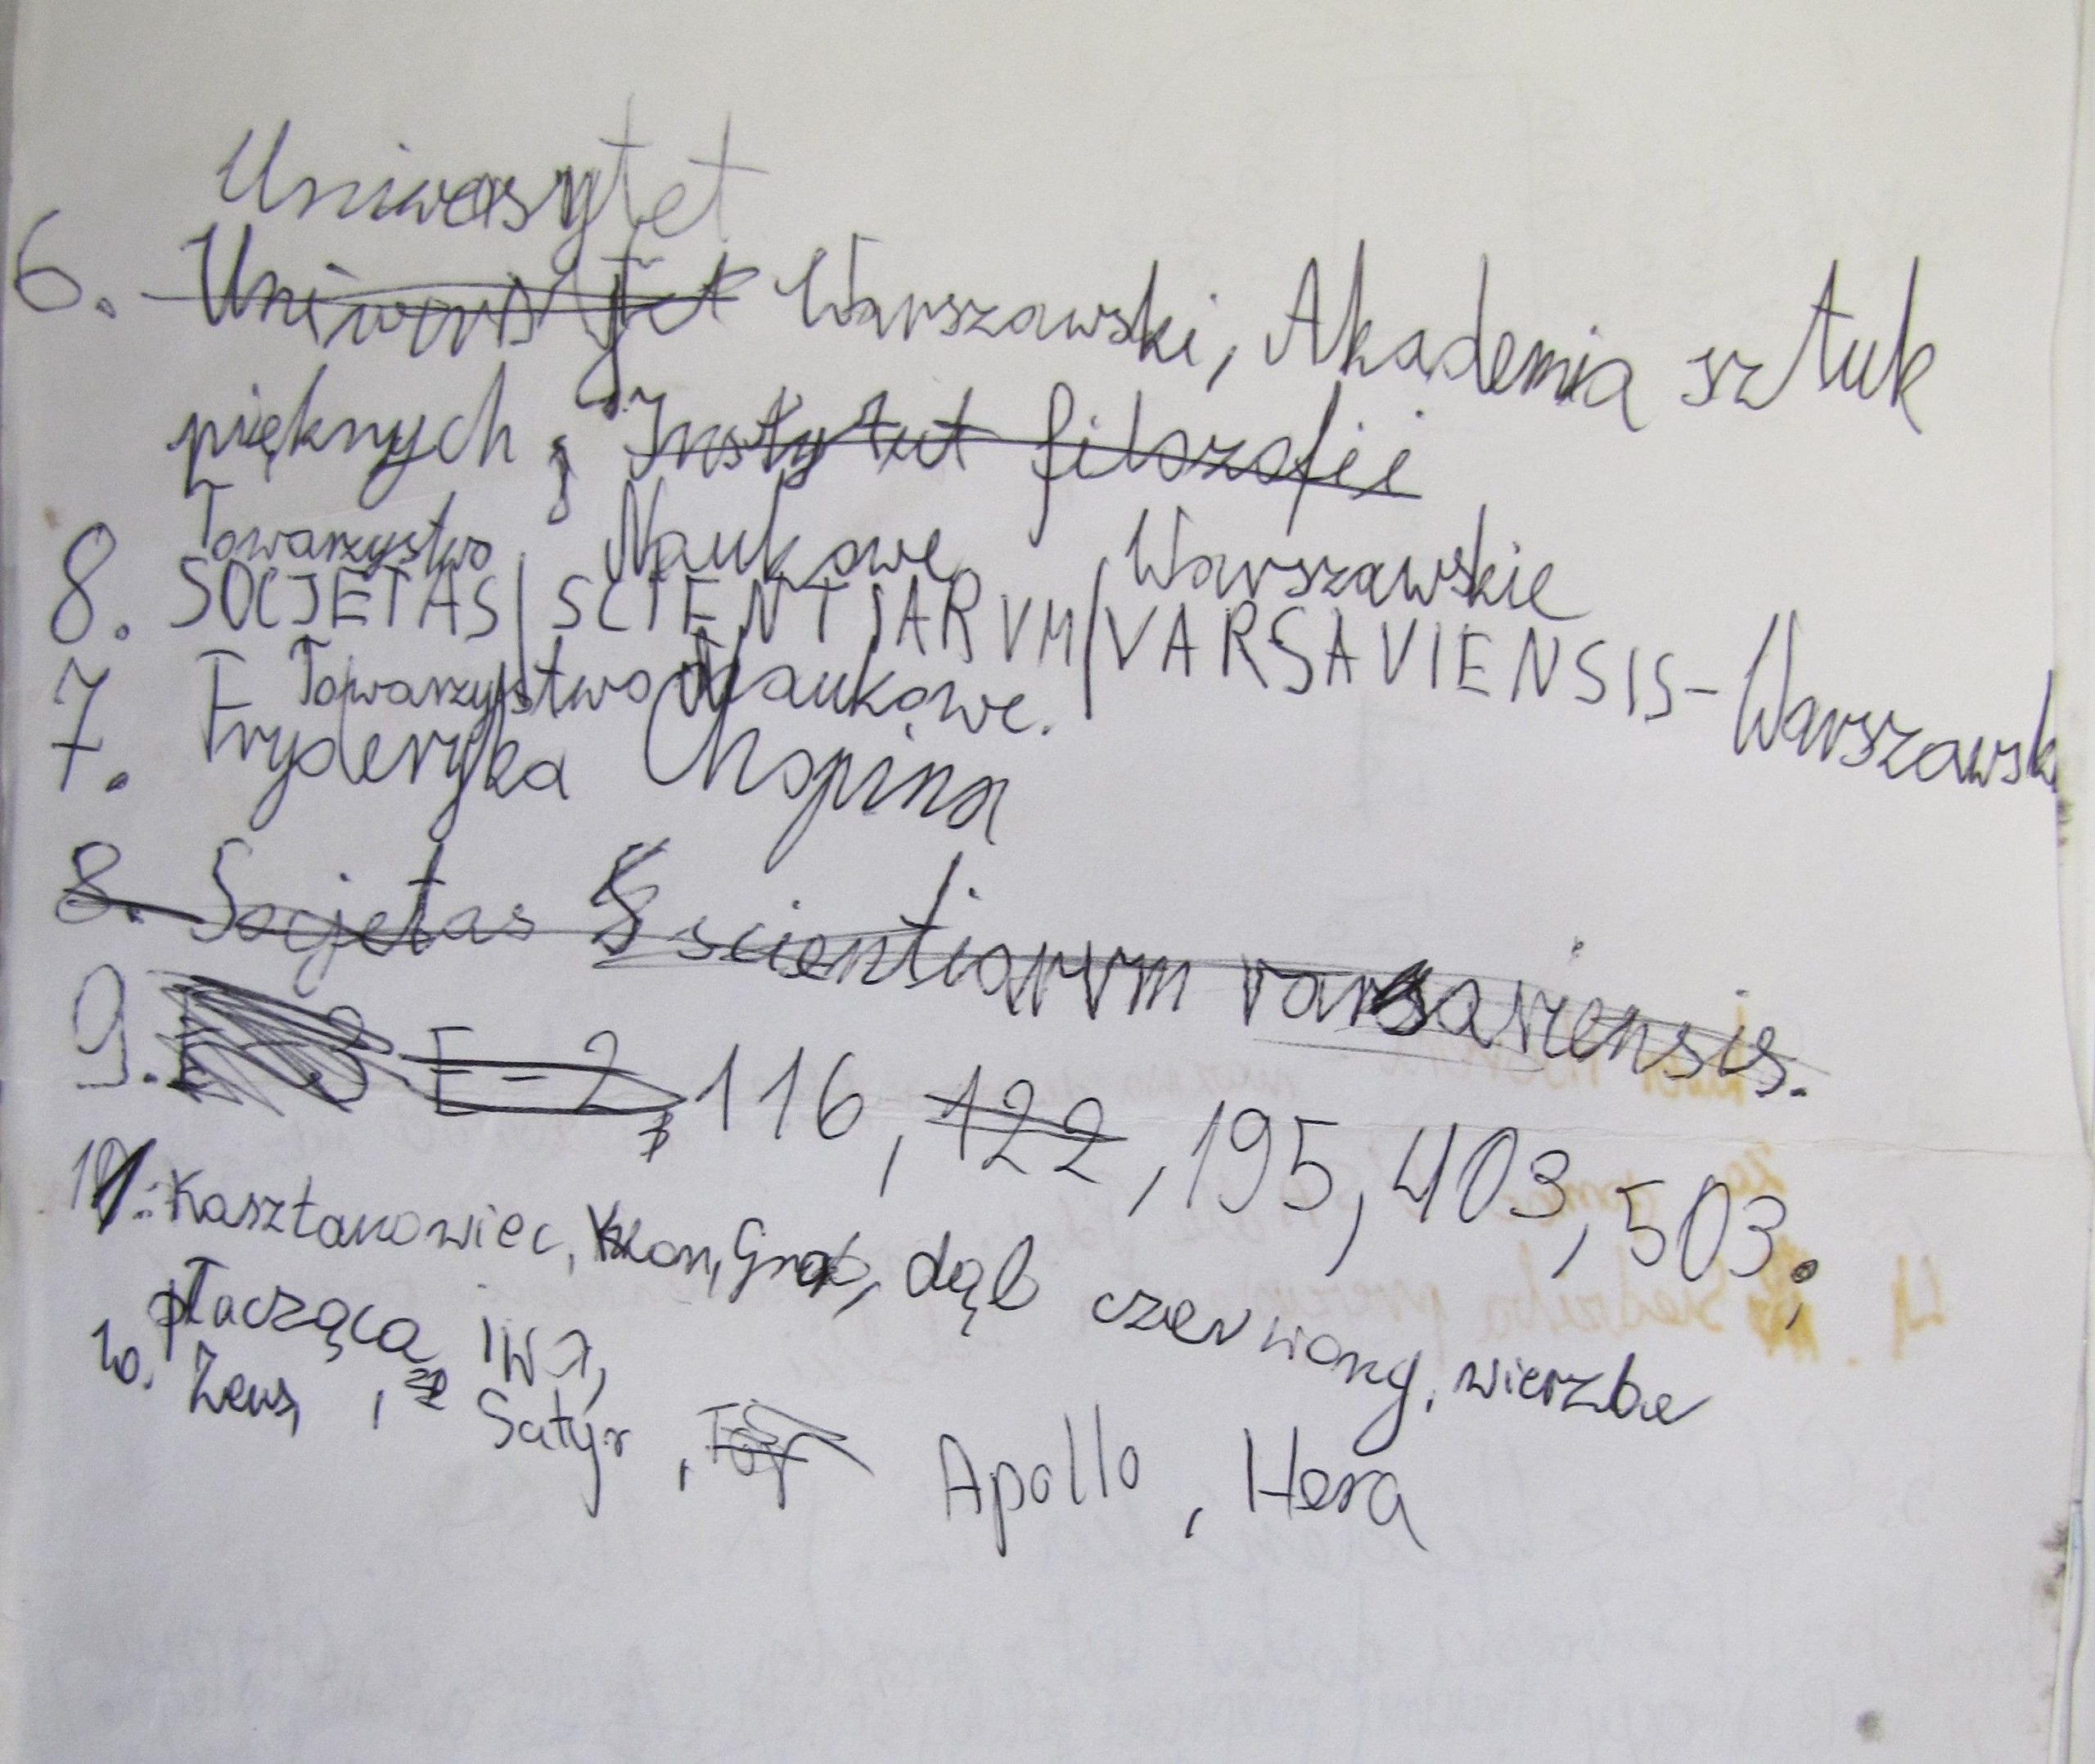 Uniwersytet
6. Uniwersytet Warszawski, Akademia sztuk
pięknych, Instytut filozofii
Towarzystwo Naukowe Warszawskie
8. SOCJETAS/SCIENTJARVM/VARSAVIENSIS-Warszawsk
Towarzystwo Naukowe.
7. Fryderyka Chopina
8. Socjetas scientiarvm varsaviensis.
9. E-3 E-2, 116, 122, 195, 403, 503.
Kasztanowiec, Klon, Grab, dąb czerwony, wierzba
płacząca, iwa,
10. Zeus, Satyr, Apollo, Hera